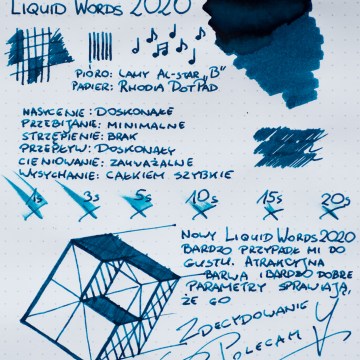 LIQUID WORDS 2020
PIÓRO: LAMY AL-STAR „B"
PAPIER: RHODIA DOTPAD
NASYCENIE: DOSKONAŁE
PRZEBIJANIE: MINIMALNE
STRZĘPIENIE: BRAK
PRZEPŁYW: DOSKONAŁY
CIENIOWANIE: ZAUWAŻALNE
WYSYCHANIE: CAŁKIEM SZYBKIE
1s 3s 5s 10s 15s 20s
NOWY LIQUID WORDS 2020
BARDZO PRZYPADŁ MI DO
GUSTU. ATRAKCYJNA
BARWA I BARDZO DOBRE
PARAMETRY SPRAWIAJĄ,
ŻE GO
ZDECYDOWANIE
POLECAM